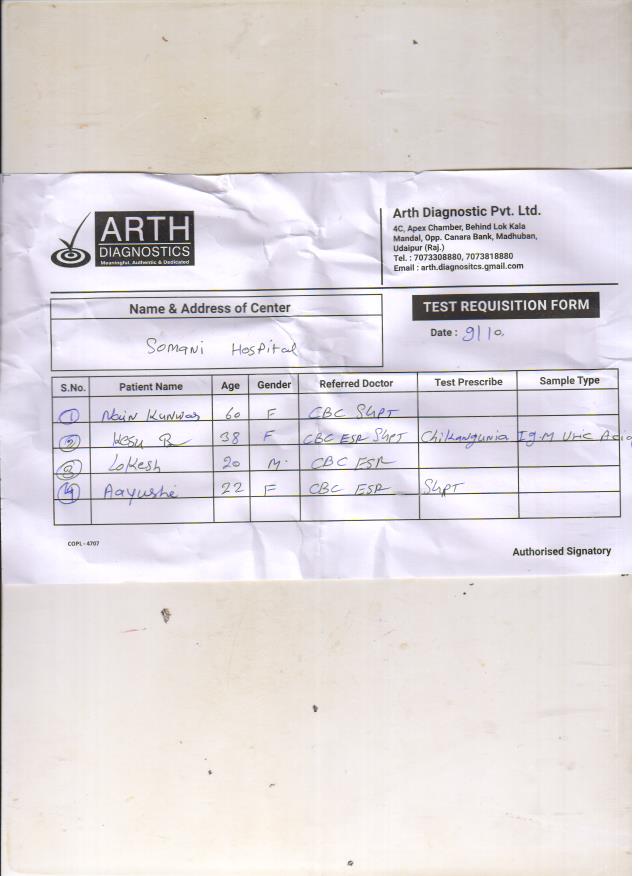 ARTH
DIAGNOSTICS
Meaningful, Authentic & Dedicated
Arth Diagnostic Pvt. Ltd.
4C, Apex Chamber, Behind Lok Kala
Mandal, Opp. Canara Bank, Madhuban,
Udaipur (Raj.)
Tel. : 7073308880, 7073818880
Email : arth.diagnositcs.gmail.com
Name & Address of Center
Somani Hospital
TEST REQUISITION FORM
Date : 9/10,
S.No. Patient Name Age Gender Referred Doctor Test Prescribe Sample Type
1 Nain Kunwar 60 F CBC SGPT
2 38 F CBC ESR SGPT Chikangunia Ig.M Uric Acid
3 Lokesh 20 M. CBC ESR
4 Aayushi 22 F CBC ESR SGPT
COPL - 4707
Authorised Signatory